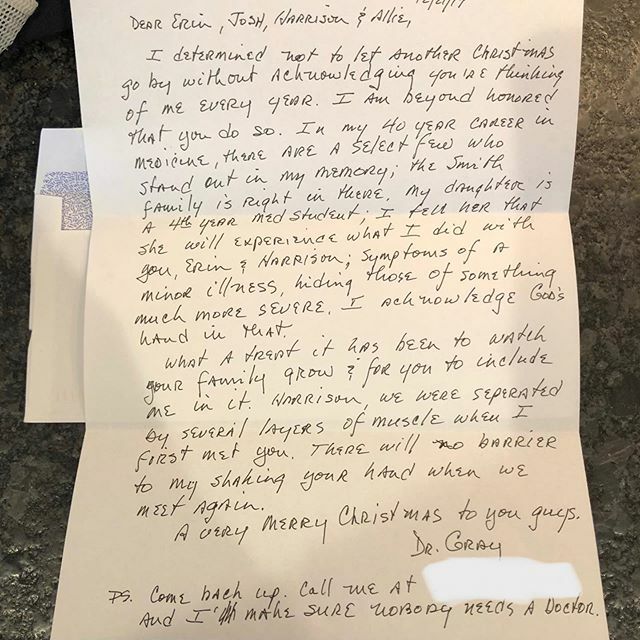 12/21/19
Dear Erin, Josh, Harrison & Allie,
I determined not to let another Christmas
go by without acknowledging you're thinking
of me every year. I am beyond honored
that you do so. In my 40 year career in
medicine, there are a select few who
stand out in my memory; the Smith
family is right in there. My daughter is
a 4th year med student; I tell her that
she will experience what I did with
you, Erin & Harrison; symptoms of a
minor illness, hiding those of something
much more severe. I acknowledge God's
hand in that.
What a treat it has been to watch
your family grow & for you to include
me in it. Harrison, we were seperated
by several layers of muscle when I
first met you. There will no barrier
to my shaking your hand when we
meet again.
A very Merry Christmas to you guys.
Dr. Gray
PS. Come back up. Call me at
And I'll make sure nobody needs a doctor.